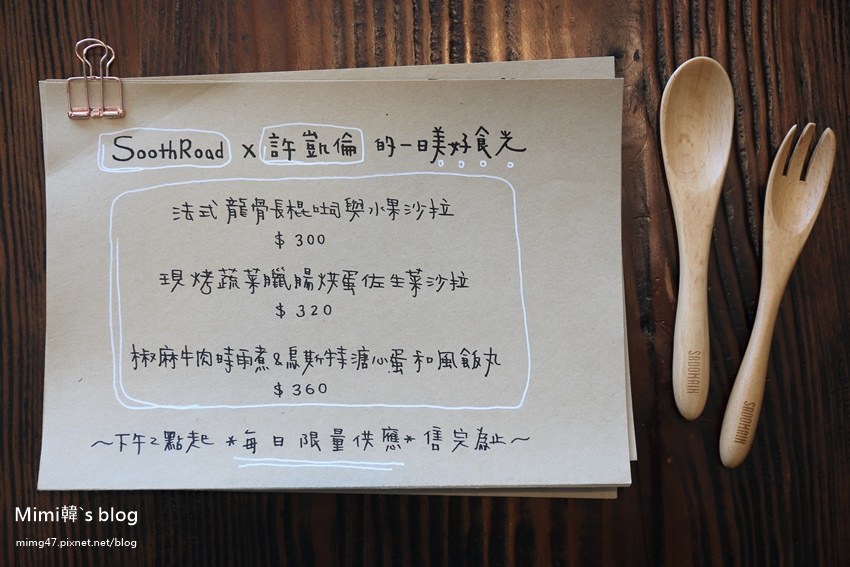 SoothRoad x 許凱倫 的一日美好食光
法式龍骨長棍吐司與水果沙拉
$ 300
現烤蔬菜臘腸烘蛋佐生菜沙拉
$ 320
椒麻牛肉時雨煮&烏斯特溏心蛋和風飯丸
$ 360
～下午2點起 *每日限量供應* 售完為止～
SADOMAIN
SADOMAIN
Mimi韓`s blog
mimg47.pixnet.net/blog